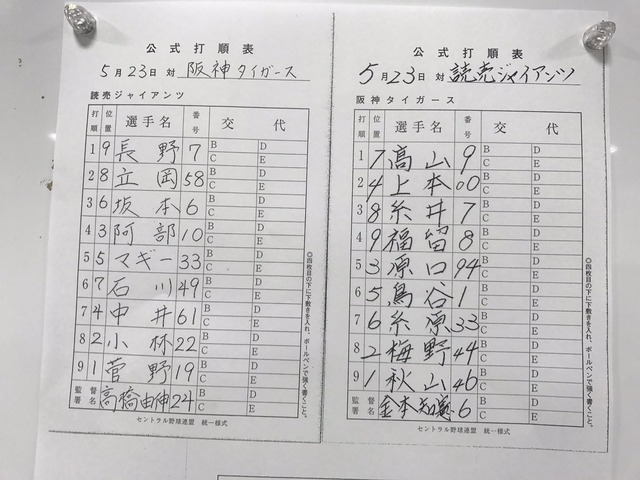 公式打順表
5月23日 対 阪神タイガース
読売ジャイアンツ
打順 位置 選手名 番号 交代
1 9 長野 7 B D C E
2 8 立岡 58 B D C E
3 6 坂本 6 B D C E
4 3 阿部 10 B D C E
5 5 マギー 33 B D C E
6 7 石川 49 B D C E
7 4 中井 61 B D C E
8 2 小林 22 B D C E
9 1 菅野 19 B D C E
監督署名 高橋由伸 24 B D C E
セントラル野球連盟 統一様式
◎四枚目の下に下敷きを入れ、ボールペンで強く書くこと。
公式打順表
5月23日 対 読売ジャイアンツ
阪神タイガース
打順 位置 選手名 番号 交代
1 7 高山 9 B D C E
2 4 上本 00 B D C E
3 8 糸井 7 B D C E
4 9 福留 8 B D C E
5 3 原口 94 B D C E
6 5 鳥谷 1 B D C E
7 6 糸原 33 B D C E
8 2 梅野 44 B D C E
9 1 秋山 46 B D C E
監督署名 金本知憲 6 B D C E
セントラル野球連盟 統一様式
◎四枚目の下に下敷きを入れ、ボールペンで強く書くこと。